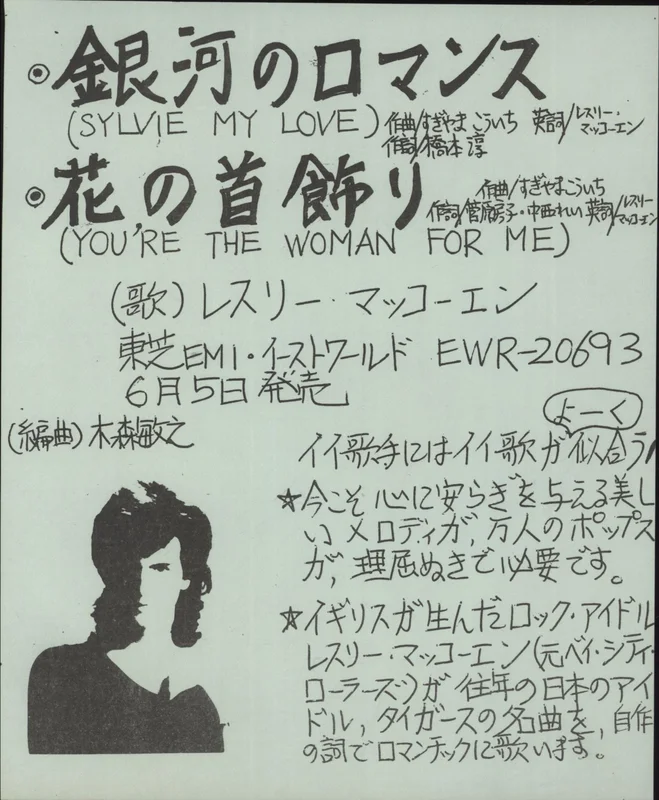 ◉銀河のロマンス
(SYLVIE MY LOVE) 作曲/すぎやまこういち 英詞/レスリー・マッコーエン
作詞/橋本淳
◉花の首飾り 作曲/すぎやまこういち
作詞/菅原房子・中西れい 英詞/レスリー・マッコーエン
(YOU'RE THE WOMAN FOR ME)
(歌)レスリー・マッコーエン
東芝EMI・イーストワールド EWR-20693
6月5日発売
(編曲)木森敏之
よーく
イイ歌手にはイイ歌が似合う!
★今こそ心に安らぎを与える美し
いメロディが,万人のポップス
が,理屈ぬきで必要です。
★イギリスが生んだロック・アイドル
レスリー・マッコーエン(元ベイ・シティ・
ローラーズ)が往年の日本のアイ
ドル,タイガースの名曲を,自作
の詞でロマンチックに歌います。